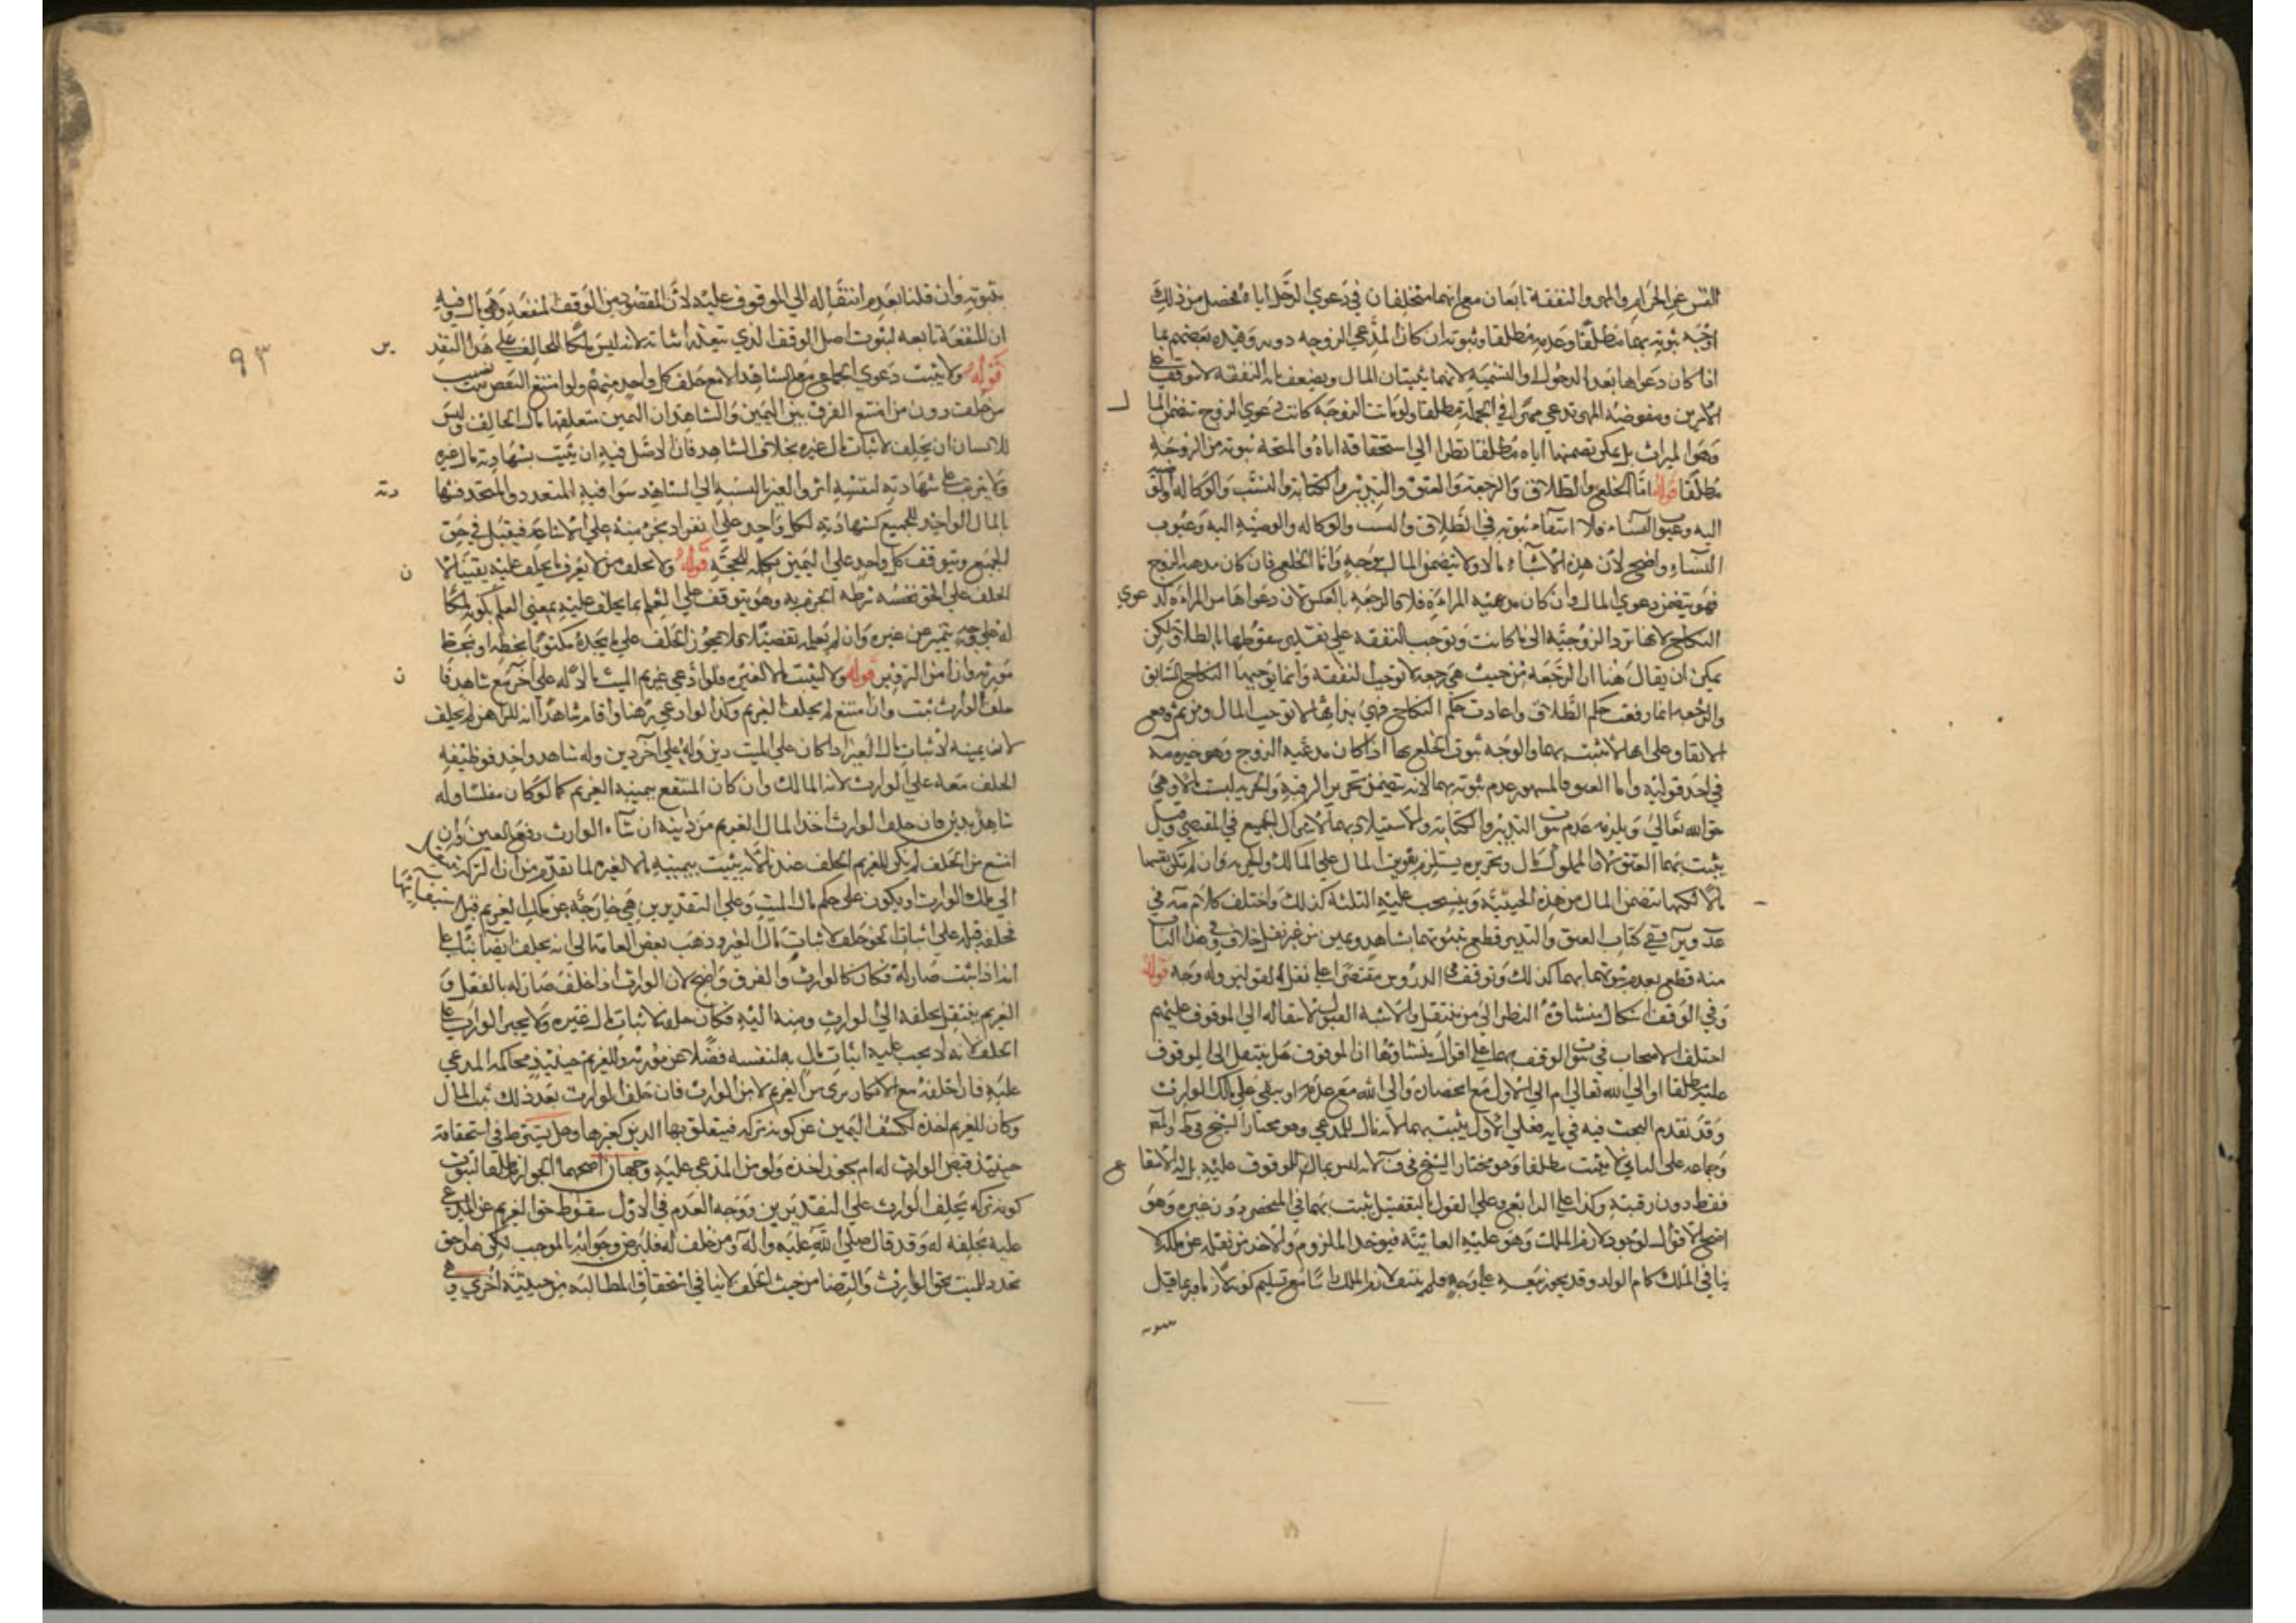 النفس عن الحرام والمهر والنفقة تابعان مع انهما مختلفان في دعوي الرجل اياه فحصل من ذلك
اوجه ثبوته بهما مطلقا وعدمه مطلقا وثبوته ان كان المدعي الزوجه دونه وقيده بعضهم بما
اذا كان دعواها بعد الدخول او التسمية لانهما يثبتان المال ويضعف بان النفقة لا تتوقف علي
الامرين ومفوضة المهر تدعي مهرا في الجملة مطلقا ولو ماتت الزوجة كانت دعوي الزوج تتضمن المال
وهو الميراث بل يمكن تضمنها اياه مطلقا نظرا الي استحقاقه اياه والمتجه ثبوته من الزوجة
مطلقا قوله اما الخلع والطلاق والرجعة والعتق والتدبير والكتابة والنسب والوكالة والوصية
اليه وعيوب النساء فلا انتفاء ثبوته في الطلاق والنسب والوكاله والوصية اليه وعيوب
النساء واضح لان هذه الاشياء مالا ولا يتضمن المال بوجه واما الخلع فان كان مدعيه الزوج
فهو يتضمن دعوي المال وان كان مدعيه المراءة فلا كالرجعة بالعكس لان دعواها من المراءة كدعوي
النكاح لانها ترد الزوجية الي ما كانت وتوجب النفقة علي تقدير سقوطها بالطلاق ولكن
يمكن ان يقال هنا ان الرجعة من حيث هي رجعة لا توجب النفقة وانما يوجبها النكاح السابق
والرجعه انما رفعت حكم الطلاق واعادت حكم النكاح فهي بذاتها لا توجب المال ومن ثم وقع
الاتفاق علي انها لا تثبت بهما والوجه ثبوت الخلع بهما اذا كان مدعيه الزوج وهو خيره مه
في احد قوليه واما العتق فالمشهور عدم ثبوته بهما لانه يتضمن تحرير الرقبة والحرية ليست مالا وهي
حق الله تعالي ويلزمه عدم ثبوت التدبير والكتابة والاستيلاد بهما لاشتراك الجميع في المقتضي وقيل
يثبت بهما العتق لان المملوك مال وتحريره يستلزم تفويت المال علي المالك والحرية وان لم تكن بنفسها
مالا لكنها تتضمن المال من هذه الحيثية وينسحب عليه الثلثة كذلك واختلف كلام مه في
عد ويرففي كتاب العتق والتدبير قطع بثبوتهما بشاهد ويمين من غير نقل خلاف وفي هذا الباب
منه قطع بعدم ثبوتهما بهما كذلك وتوقف في الدروس مقتصرا علي نقله القولين وله وجه قوله
وفي الوقف اشكال ينشاء من النظر الي من ينتقل والاشبه القبول لانتقاله الي الموقوف عليهم
اختلف الاصحاب في ثبوت الوقف بهما علي اقوال ينشاوها ان الموقوف هل ينتقل الي الموقوف
عليه مطلقا او الي الله تعالي ام الي الاول مع انحصاره والي الله مع عدمه او يبقي علي ملك الوارث
وقد تقدم البحث فيه في بابه فعلي الاول يثبت بهما لانه مال للمدعي وهو مختار الشيخ في ط والمص
وجماعه علي الثاني لا يثبت مطلقا وهو مختار الشيخ في ف لانه ليس بمال للموقوف عليه بل له الانتفاع
فقط دون رقبته وكذا علي الرابع وعلي القول بالتفصيل يثبت بهما في المنحصر دون غيره وهو
اصح الاقوال لوجود لازم الملك وهو عليه العايبة فيوجد الملزوم والاخذ من نقله عن ملكه لا
ينافي الملك كام الولد وقد يجوز بيعه علي وجه فلم ينتف لازم الملك راسا مع تسليم كونه لازما وربما قيل
بثبوته وان قلنا بعدم انتقاله الي الموقوف عليه لان المقصود من الوقف المنفعة وهي مال وفيه
ان المنفعة تابعه لثبوت اصل الوقف الذي يتعذر اثباته لانه ليس ملكا للحالف علي هذا التقدير
٩٣
قوله ولا يثبت دعوي الجماعة مع الشاهد الا مع حلف كل واحد منهم ولو امتنع البعض ثبت نصيب
من حلف دون من امتنع الفرق بين اليمين والشاهد ان اليمين متعلقها مال الحالف وليس
للانسان ان يحلف لاثبات مال غيره بخلاف الشاهد فان الاصل فيه ان يثبت بشهادته مال غيره
ولا يترتب علي شهادته لنفسه اثر والغير بالنسبة الي الشاهد سوا فيه المتعدد والمتحد فشهادته
بالمال الواحد للجميع كشهادته لكل واحد علي انفراد بجزء منه علي الاشاعة فيقبل في حق
الجميع ويتوقف كل واحد علي اليمين تكملة للحجة قوله ولا يحلف من لا يعرف ما يحلف عليه يقينا لان
الحلف علي الحق نفسه شرطه الجزم به وهو يتوقف علي العلم بما يحلف عليه بمعني العلم بكونه ملكا
له علي وجه يتميز عن غيره وان لم يعلمه تفصيلا فلا يجوز الحلف علي ما يجده مكتوبا بخطه او بخط
مورثه وان امن التزوير قوله ولا يثبت مالا لغيره فلو ادعي غريم الميت مالا له علي اخر مع شاهد فان
حلف الوارث ثبت وان امتنع لم يحلف الغريم وكذا لو ادعي رهنا واقام شاهدا انه للراهن لم يحلف
لان يمينه لاثبات مال الغير اذا كان علي الميت دين وله علي اخر دين وله شاهد واحد فوظيفه
الحلف معه علي الوارث لانه المالك وان كان المنتفع بيمينه الغريم كما لو كان مفلسا وله
شاهد بدين فان حلف الوارث اخذ المال الغريم من دينه ان شاء الوارث دفع العين وان
امتنع من الحلف لم يكن للغريم الحلف عندنا لانه يثبت بيمينه مالا لغيره لما تقدم من ان التركة تنتقل
الي ملك الوارث او يكون علي حكم مال الميت وعلي التقديرين هي خارجة عن ملك الغريم قبل استيفائها
فحلفه قبله علي اثبات نحو حلف لاثبات مال الغير وذهب بعض العامة الي انه يحلف ايضا بناء علي
انه اذا ثبت صار له فكان كالوارث والفرق واضح لان الوارث اذا حلف صار له بالفعل و
الغريم ينتقل بحلفه الي الوارث ومنه اليه فكان حلفه لاثبات مال غيره ولا يجبر الوارث علي
الحلف لانه لا يجب عليه اثبات مال له لنفسه فضلا عن مورثه وللغريم حينيذ محاكمة المدعي
عليه فان احلفه مع الانكار بري من الغريم لا من الوارث فان حلف الوارث بعد ذلك ثبت المال
وكان للغريم اخذه لكشف اليمين عن كونه تركه فيتعلق بها الدين كغيرها وهل يتوقط في استحقاقه
حينيذ قبض الوارث له ام يجوز اخذه ولو من المدعي عليه وجهان اصحهما الجواز مطلقا لثبوت
كونه تركه بحلف الوارث علي التقديرين ووجه العدم في الاول سقوط حق الغريم عن المدعي
عليه بحلفه له وقد قال صلي الله عليه واله ومن حلف له فليرض وجوابه بالموجب لكن هذا حق
تجدد للميت بحق الوارث والرضا من حيث الحلف لا ينافي استحقاق المطالبه من حيثية اخري وفي